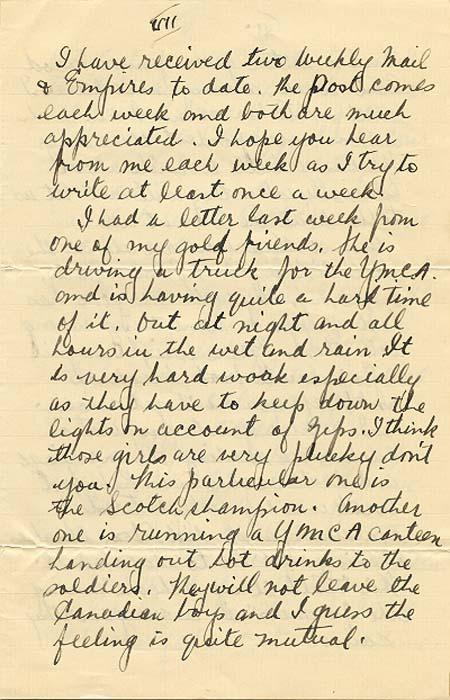 VII
I have received two Weekly Mail
& Empires to date. The Post comes
each week and both are much
appreciated. I hope you hear
from me each week as I try to
write at least once a week.
I had a letter last week from
one of my golf friends. She is
driving a truck for the Y.M.C.A.
and is having quite a hard time
of it. Out at night and all
hours in the wet and rain It
is very hard work especially
as they have to keep down the
lights on account of Zeps. I think
those girls are very plucky don't
you. This particular one is
the Scotch champion. Another
one is running a YMCA canteen
handing out hot drinks to the
soldiers. They will not leave the
Canadian boys and I guess the
feeling is quite mutual.